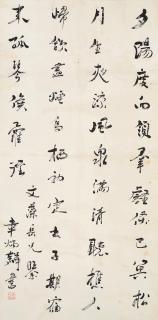 夕陽度西嶺羣壑倏已冥松
月生夜涼風泉滿清聽樵人
歸欲盡煙鳥棲初定之子期宿
來孤琴候蘿徑
文藻長兄
章炳麟書